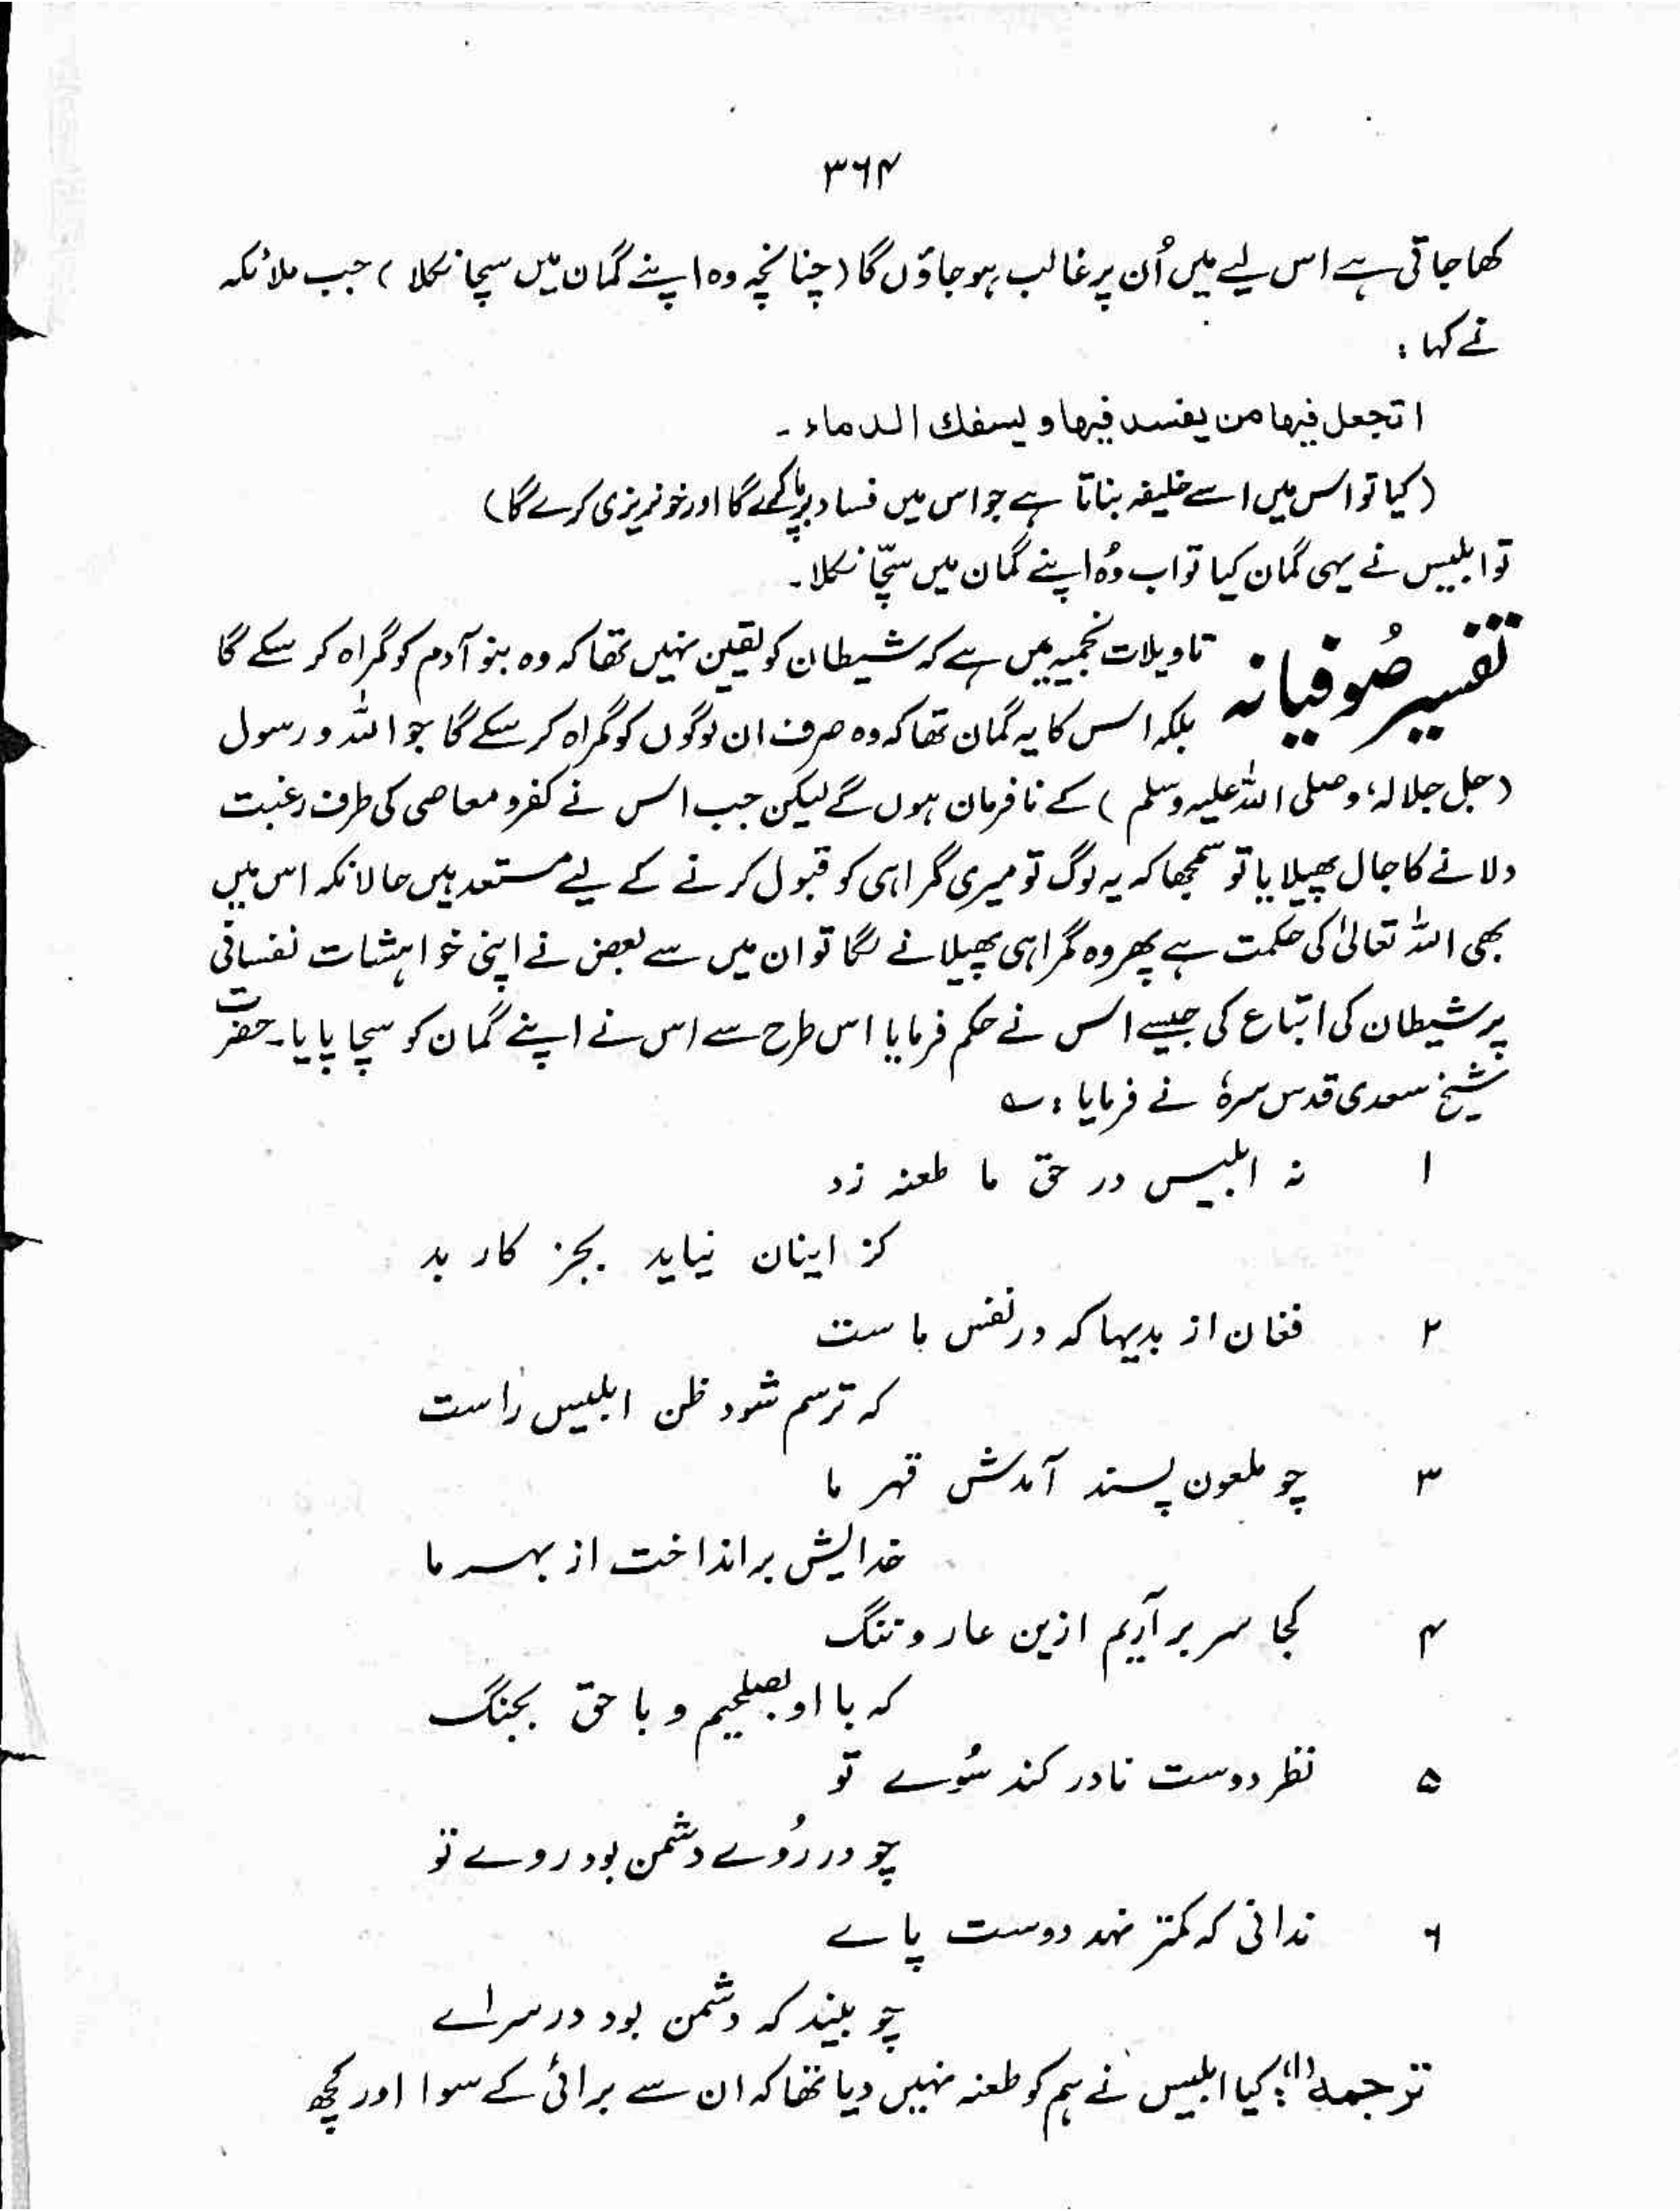 ۳۶۴
کھا جاتی ہے اس لیے میں اُن پر غالب ہو جاؤں گا (چنانچہ وہ اپنے گمان میں سچا نکلا) جب ملائکہ
نے کہا :
اتجعل فیھا من یفسد فیھا و یسفك الدماء ۔
(کیا تو اس میں اسے خلیفہ بناتا ہے جو اس میں فساد برپا کرے گا اور خونریزی کرے گا)
تو ابلیس نے یہی گمان کیا تو اب وُہ اپنے گمان میں سچّا نکلا۔
تفسیر صُوفیانہ تاویلات نجمیہ میں ہے کہ شیطان کو یقین نہیں تھا کہ وہ بنو آدم کو گمراہ کر سکے گا
بلکہ اس کا یہ گمان تھا کہ وہ صرف ان لوگوں کو گمراہ کر سکے گا جو اللہ و رسول
(جل جلالہ، و صلی اللہ علیہ وسلم) کے نافرمان ہوں گے لیکن جب اس نے کفر و معاصی کی طرف رغبت
دلانے کا جال پھیلایا تو سمجھا کہ یہ لوگ تو میری گمراہی کو قبول کرنے کے لیے مستعد ہیں حالانکہ اس میں
بھی اللہ تعالیٰ کی حکمت ہے پھر وہ گمراہی پھیلانے لگا تو ان میں سے بعض نے اپنی خواہشات نفسانی
پر شیطان کی اتباع کی جیسے اس نے حکم فرمایا اس طرح سے اس نے اپنے گمان کو سچا پایا۔ حضرت
شیخ سعدی قدس سرہٗ نے فرمایا : ؎
۱ نہ ابلیس در حق ما طعنہ زد
کز اینان نیاید بجز کار بد
۲ فغان از بدیہا کہ در نفس ماست
کہ ترسم شود ظن ابلیس راست
۳ چو ملعون پسند آمدش قہر ما
خدایش برانداخت از بہر ما
۴ کجا سر بر آریم ازین عار و ننگ
کہ با او بصلحیم و با حق بجنگ
۵ نظر دوست نادر کند سُوے تو
چو در رُوے دشمن بود روے تو
۶ ندانی کہ کمتر نہد دوست پاے
چو بیند کہ دشمن بود در سراے
ترجمہ (۱): کیا ابلیس نے ہم کو طعنہ نہیں دیا تھا کہ ان سے برائی کے سوا اور کچھ